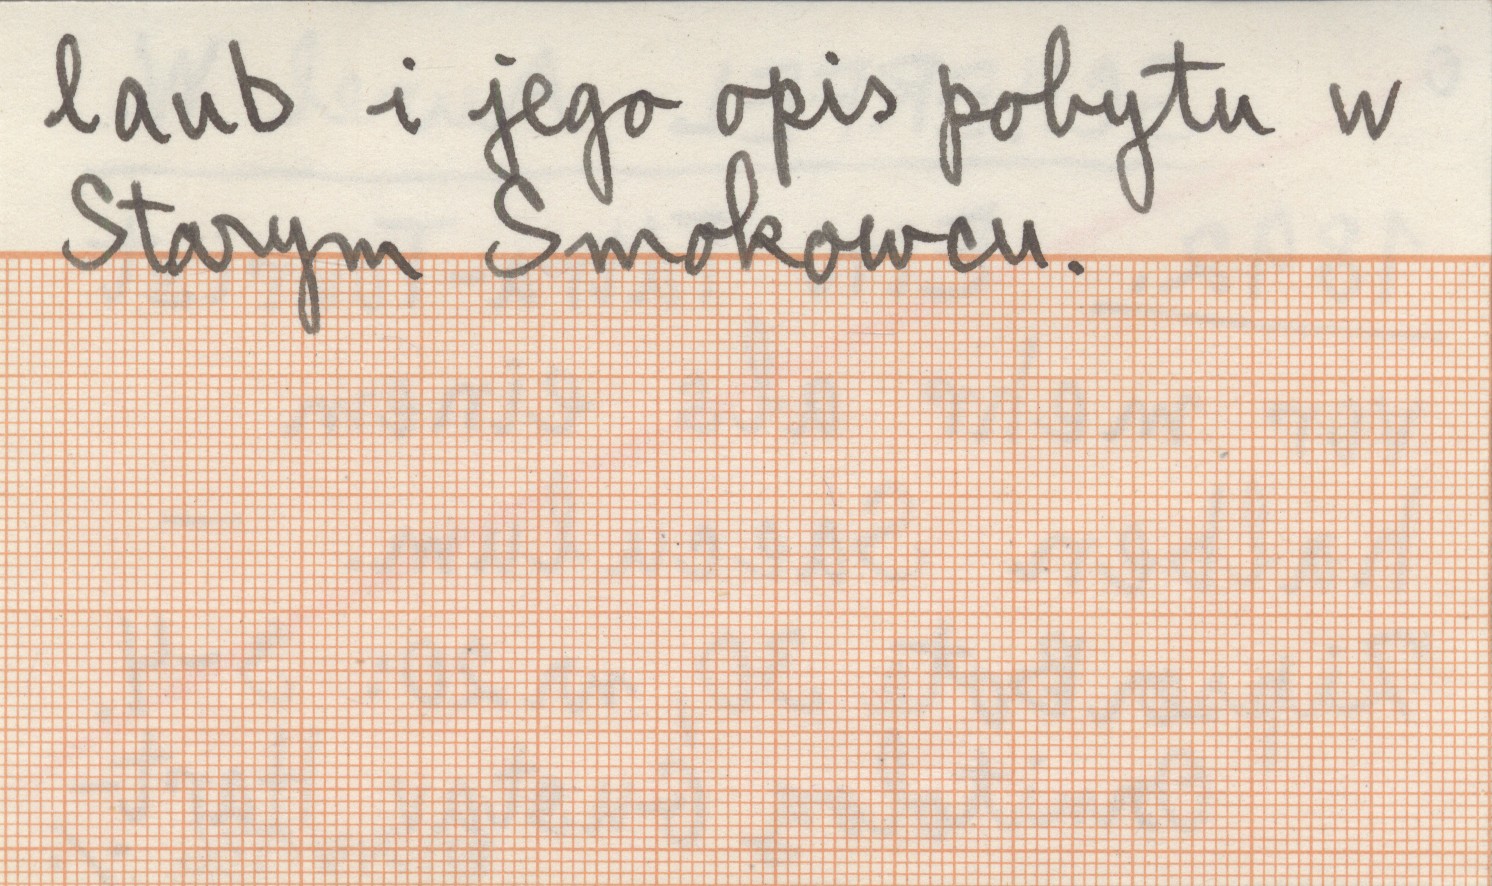 laub i jego opis pobytu w
Starym Smokowcu.